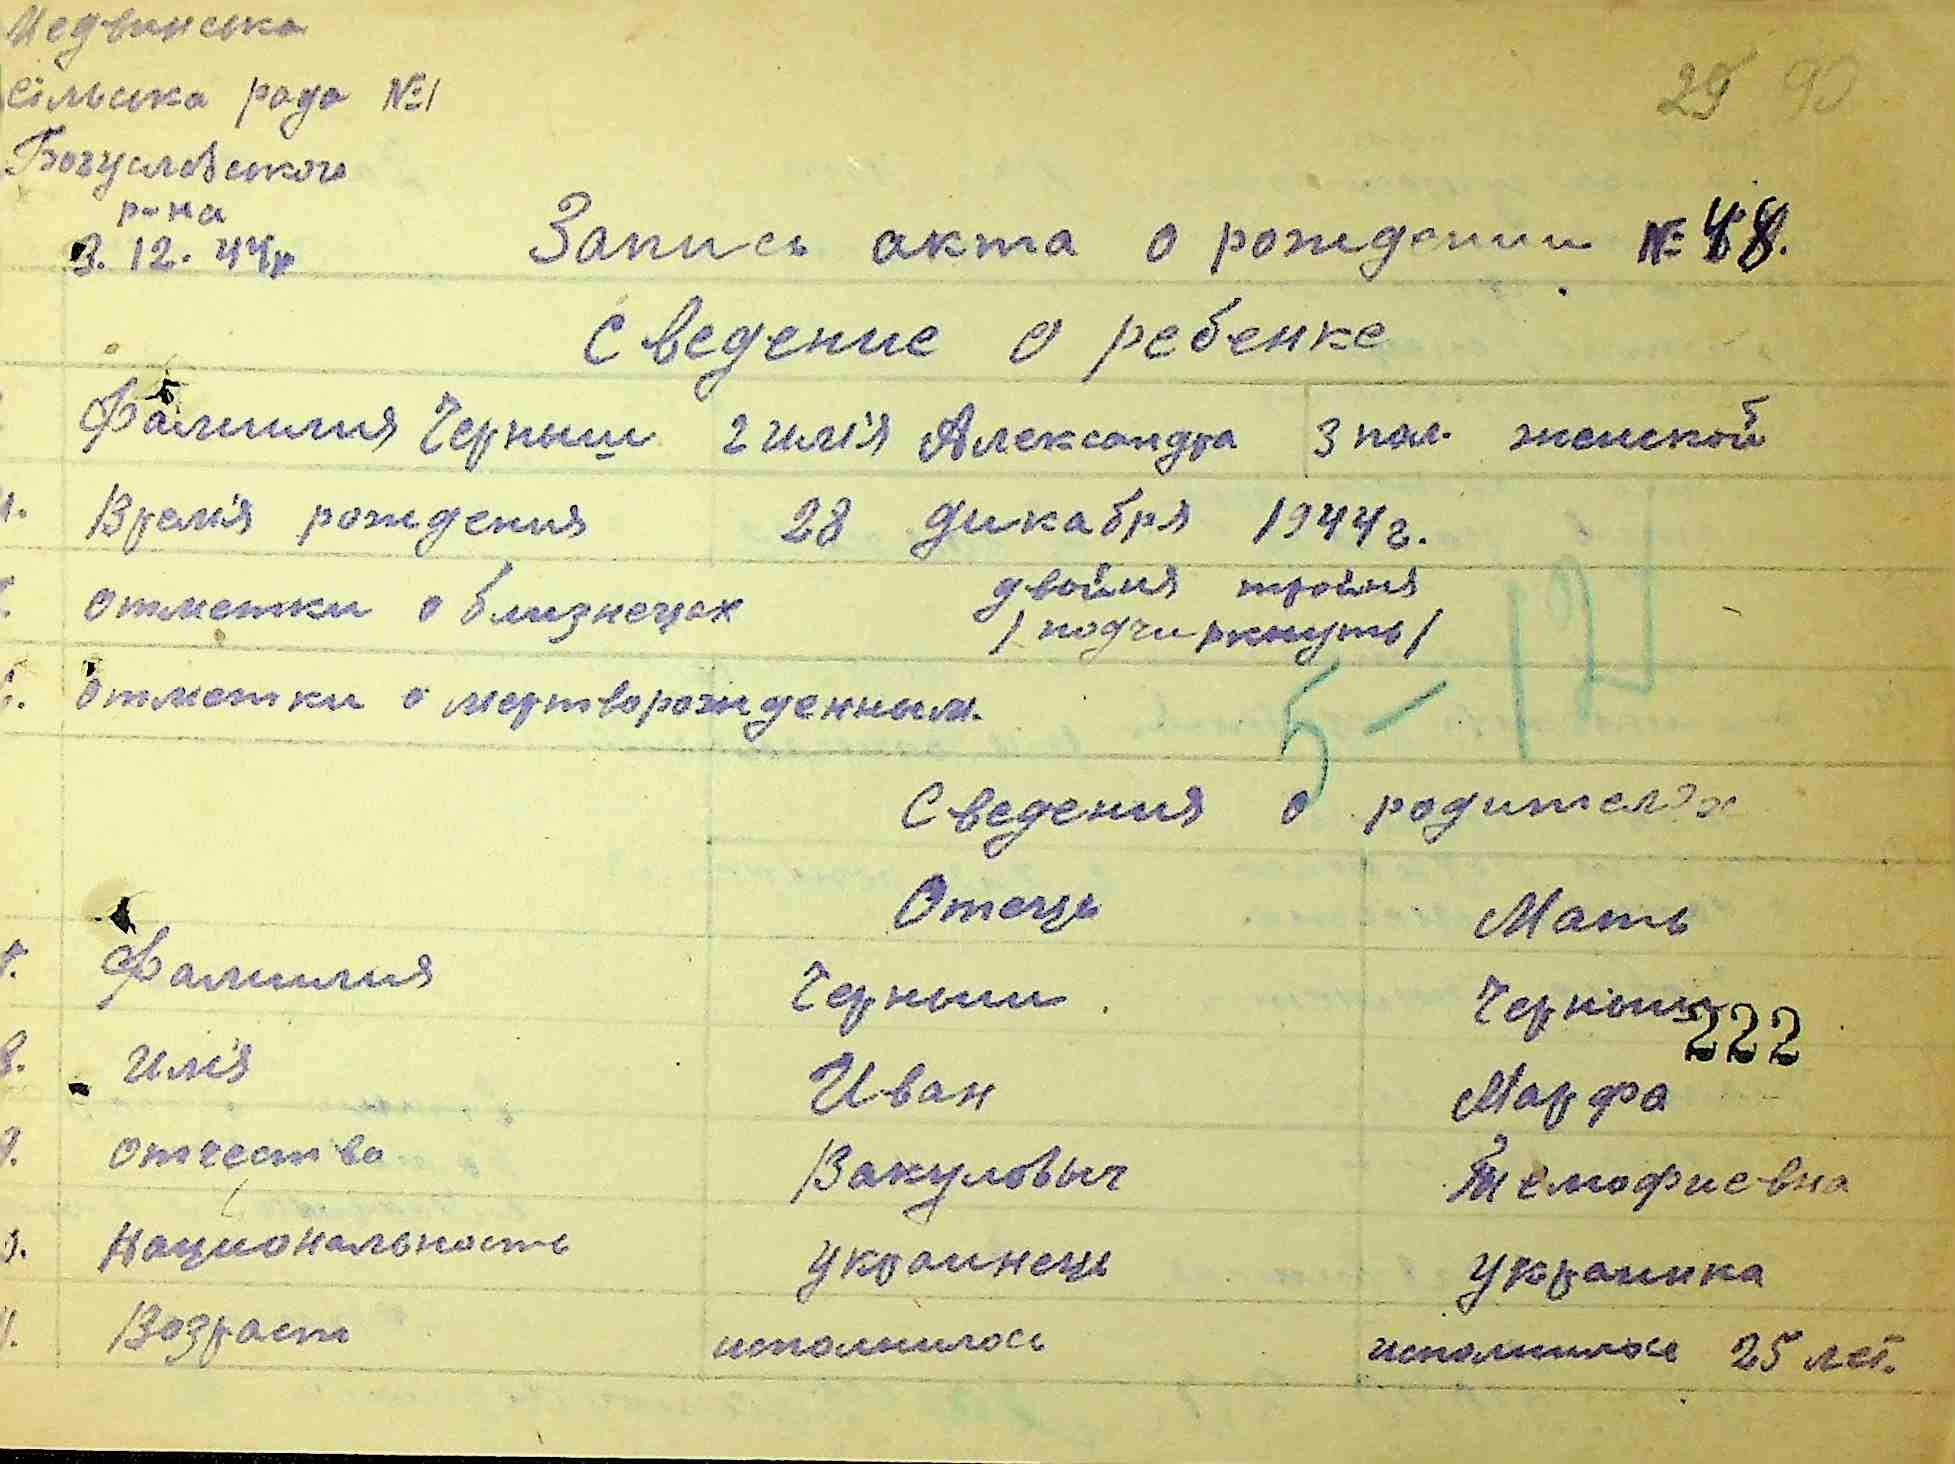 Медвинська
сільська рада №1
Богуславського
р-на
3. 12. 44р
29 90
Запись акта о рождении № 48.
Сведение о ребенке
Фамилия Черныш 2 имя Александра 3 пол. женской
Время рождения 28 дикабря 1944г.
отметки о близнецах двойня тройня
/подчиркнуть/
5-12
отметки о мертворожденным.
Сведения о родителях
Отець Мать
Фамилия Черныш Черныш
222
8. имя Иван Марфа
9. отчество Вакуловыч Темофиевна
Национальность украинець украинка
Возраст исполнилось исполнилось 25 лет.